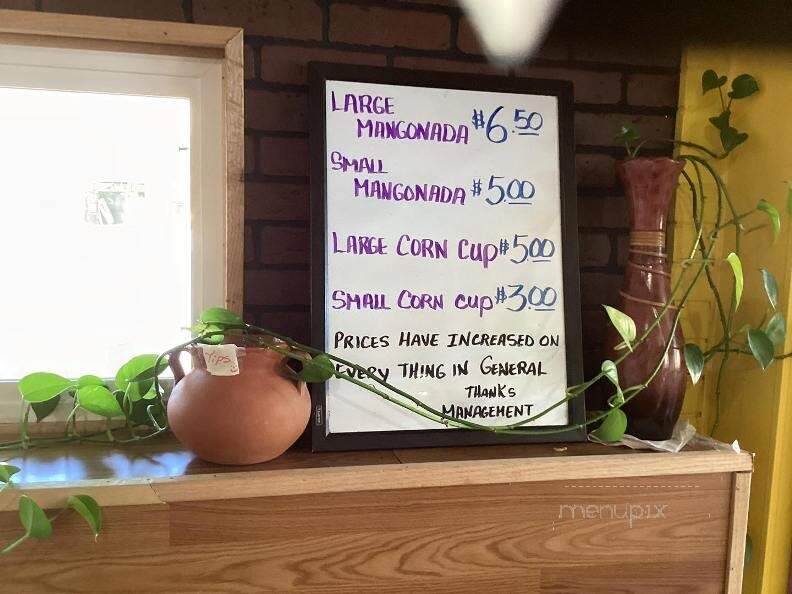 LARGE
MANGONADA $6.50
SMALL
MANGONADA $5.00
LARGE CORN CUP $5.00
SMALL CORN CUP $3.00
PRICES HAVE INCREASED ON
EVERY THING IN GENERAL
THANKS
MANAGEMENT
Tips
menupix